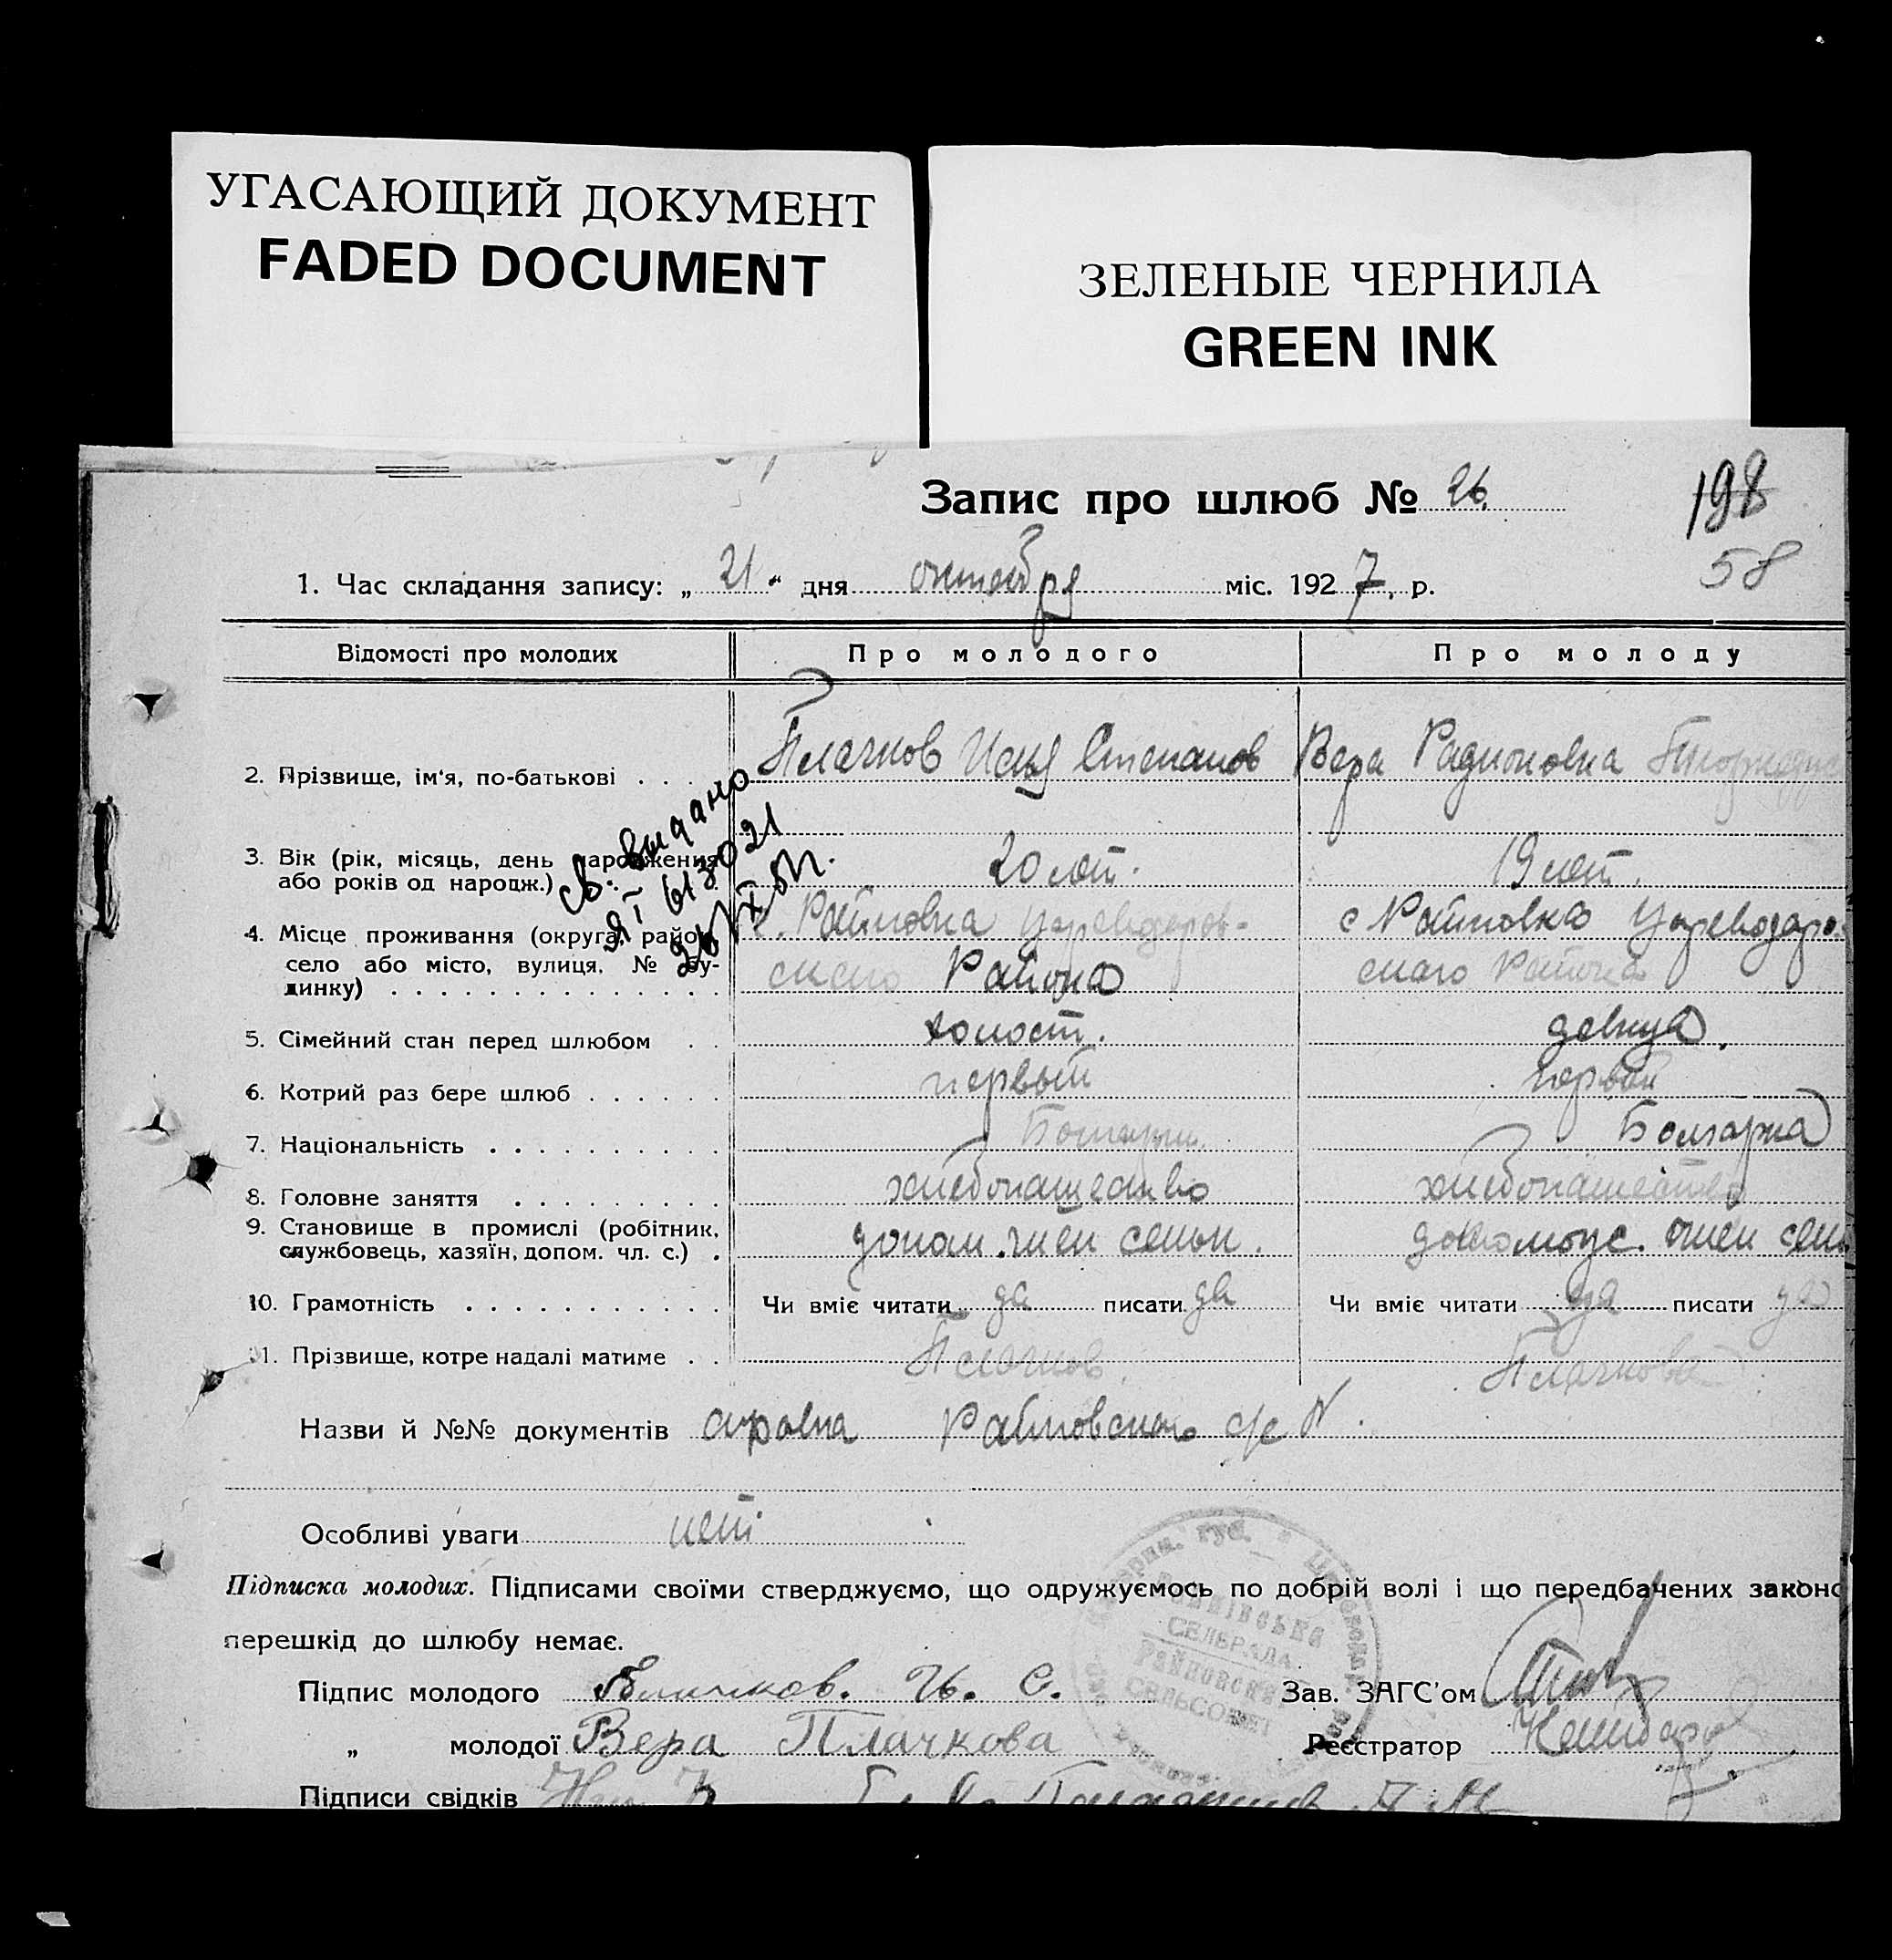 УГАСАЮЩИЙ ДОКУМЕНТ
FADED DOCUMENT
ЗЕЛЕНЫЕ ЧЕРНИЛА
GREEN INK
Запис про шлюб № 26.
198
58
1. Час складання запису: „ 21 “ дня октября міс. 1927, р.
Відомості про молодих Про молодого Про молоду
2. Прізвище, ім‘я, по-батькові Плачков Степанов Вера Радионовна
3. Вік (рік, місяць, день народження 20 лет. 19 лет.
або років од народж.)
св. выдано
ЯІ 613021
4. Місце проживання (округа, район, с. Райновка Цареводаров- с Райновка Цареводаров
село або місто, вулиця, № бу- скаго Района скаго Района
динку)
5. Сімейний стан перед шлюбом холост. девица.
6. Котрий раз бере шлюб первый первый
7. Національність Болгарин. Болгарка
8. Головне заняття хлебопашество хлебопашество
9. Становище в промислі (робітник, допом. член семьи. член семь
службовець, хазяїн, допом. чл. с.)
10. Грамотність Чи вміє читати да писати да Чи вміє читати да писати да
11. Прізвище, котре надалі матиме Плачков. Плачкова
Назви й №№ документів справка Райновскаго с/с №.
Особливі уваги нет
Підписка молодих. Підписами своїми стверджуємо, що одружуємось по добрій волі і що передбачених законо
перешкід до шлюбу немає.
СЕЛЬРАДА
Райновский
СЕЛЬСОВЕТ
Підпис молодого Плачков. И. С. Зав. ЗАГС‘ом
„ молодої Вера Плачкова Реєстратор
Підписи свідків